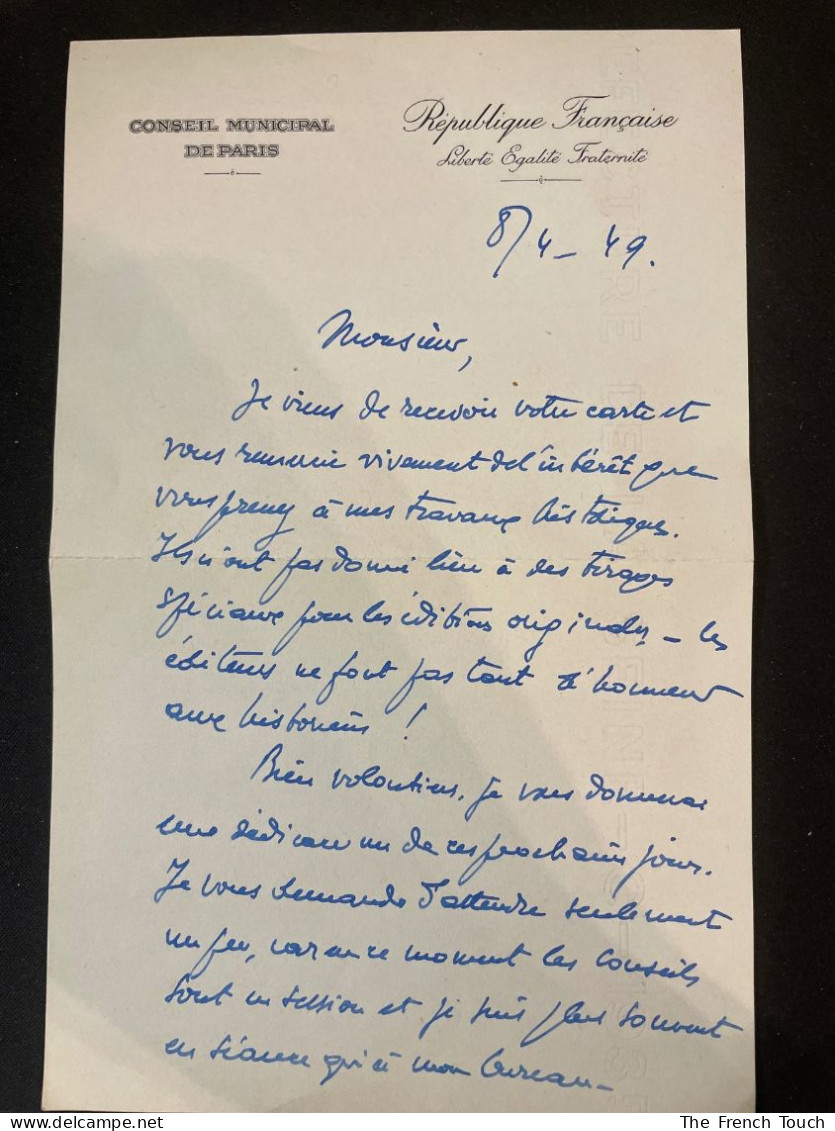 CONSEIL MUNICIPAL
DE PARIS
République Française
Liberté Egalité Fraternité
8/4-49.
Monsieur,
Je viens de recevoir votre carte et
vous remercie vivement de l'intérêt que
vous prenez à mes travaux historiques.
Ils n'ont pas donné lieu à des tirages
spéciaux pour les éditions originales, - les
éditeurs ne font pas tant d'honneur
aux historiens !
Bien volontiers, je vous donnerai
une dédicace un de ces prochains jours.
Je vous demande d'attendre seulement
un peu, car en ce moment les Conseils
sont en session et je suis plus souvent
en séance qu'à mon bureau -
The French Touch